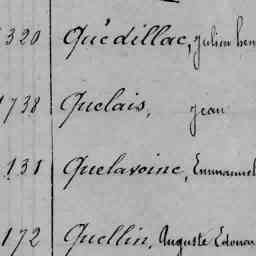 320 Quédillac, Julien hen
1738 Quelais, jean
131 Quelavoine, Emmanuel
172 Quellin, Auguste Edouar